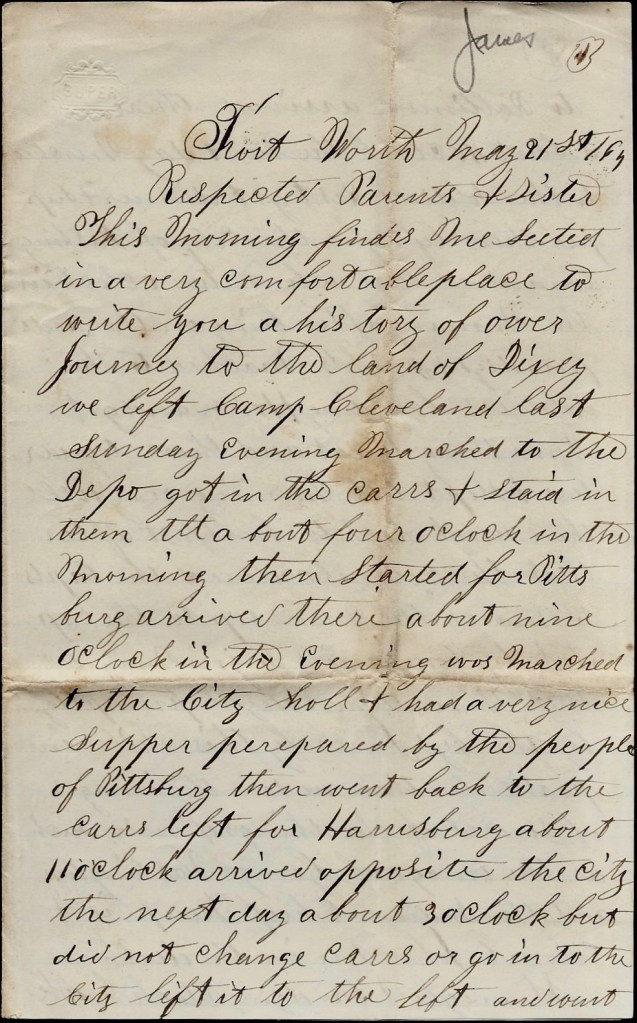 James
SUPER
Fort Worth May 21st /64
Respected Parents & Sister
This Morning findes Me Seeted
in a very comfortableplace to
write you a history of ower
Journey to the land of Dixey
we left Camp Cleveland last
Sunday Evening Marched to the
Depo got in the carrs & staid in
them till about four oclock in the
Morning then Started for Pitts
burg arrived there about nine
Oclock in the Evening wos Marched
to the City holl & had a very nice
Supper perepared by the people
of Pittsburg then went back to the
carrs left for Harrisburg about
11 oclock arrived opposite the city
the next day about 3 oclock but
did not change carrs or go in to the
City left it to the left and went